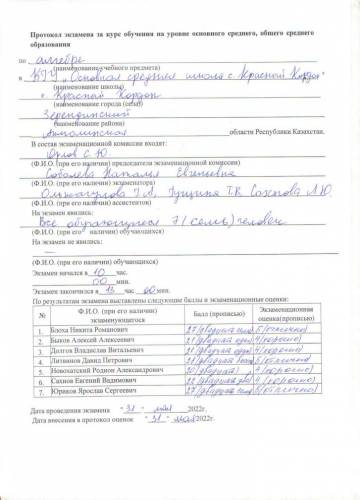 Протокол экзамена за курс обучения на уровне основного среднего, общего среднего
образования
по алгебре
(наименование учебного предмета)
в КГУ "Основная средняя школа с. Красный Кордон"
(наименование школы)
с. Красный Кордон
(наименование города (села)
Зерендинский
(наименование района)
Акмолинская области Республики Казахстан.
В состав экзаменационной комиссии входят:
Орлов С. Ю
(Ф.И.О. (при его наличии) председателя экзаменационной комиссии)
Соболева Наталья Евгеньевна
(Ф.И.О. (при его наличии) экзаменатора)
Т.К. Л.Ю.
(Ф.И.О. (при его наличии) ассистентов)
На экзамен явились:
Все обучающиеся 7 (семь) человек
(Ф.И.О. (при его наличии) обучающихся)
На экзамен не явились:
—
(Ф.И.О. (при его наличии) обучающихся)
Экзамен начался в 10 час.
00 мин.
Экзамен закончился в 13 час 00 мин.
По результатам экзамена выставлены следующие баллы и экзаменационные оценки:
№ Ф.И.О. (при его наличии) экзаменующегося Балл (прописью) Экзаменационная оценка(прописью)
1. Блоха Никита Романович 27 (двадцать семь) 5 (отлично)
2. Быков Алексей Алексеевич 21 (двадцать один) 4 (хорошо)
3. Долгов Владислав Витальевич 21 (двадцать один) 4 (хорошо)
4. Литвинов Давид Петрович 21 (двадцать один) 4 (хорошо)
5. Новохатский Родион Александрович 20 (двадцать) 4 (хорошо)
6. Сахнов Евгений Вадимович 22 (двадцать два) 4 (хорошо)
7. Юраков Ярослав Сергеевич 27 (двадцать семь) 5 (отлично)
Дата проведения экзамена "31" мая 2022г.
Дата внесения в протокол оценок "31" мая 2022г.